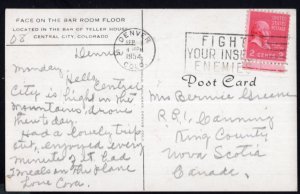 FACE ON THE BAR ROOM FLOOR
LOCATED IN THE BAR OF TELLER HOUSE
CENTRAL CITY, COLORADO
68
DENVER
SEP
1954
COLO
FIGHT
YOUR INSE
ENEMIE
2 CENTS 2
Denver
Monday
Hello, Central
City is high in the
Mountains, drove
there today
Had a lovely trip
out, enjoyed every
minute of it. Had
2 meals on the Plane
Love Cora.
Post Card
Mrs Bernice Greene
R.R.1, Canning
King County
Nova Scotia
Canada.